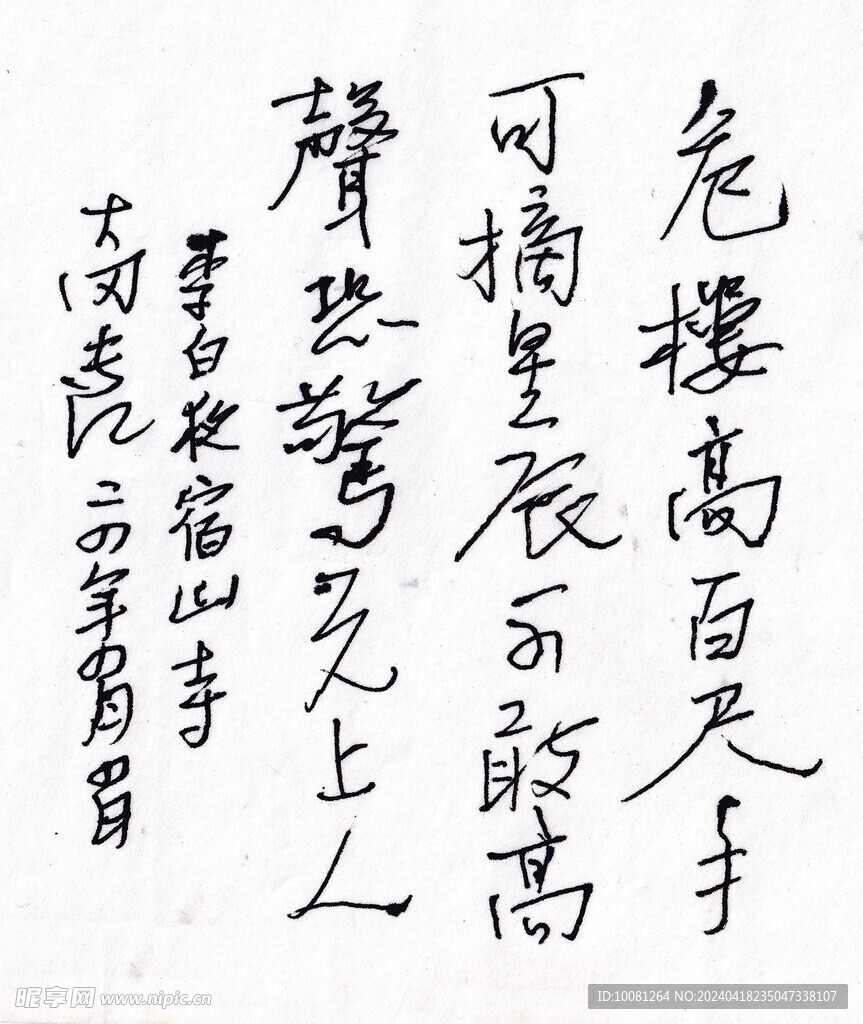 危樓高百尺手
可摘星辰不敢高
聲恐驚天上人
李白夜宿山寺
二四年四月
昵享网 www.nipic.cn
ID:10081264 NO:20240418235047338107